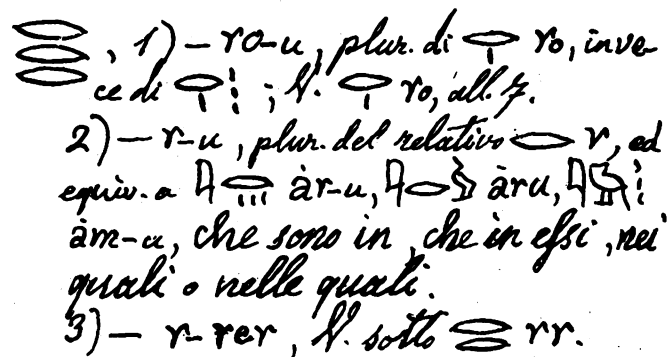 𓂋𓂋𓂋, 1) — ro-u, plur. di 𓂋𓏤 ro, inve-
ce di 𓂋𓏤𓏥; V. 𓂋𓏤 ro, all. 7.
2) — r-u, plur. del relativo 𓂋 r, ed
equiv. a 𓇋𓂋𓏥 àr-u, 𓇋𓂋𓅱 àru, 𓇋𓅓𓏥
àm-u, che sono in, che in essi, nei
quali o nelle quali.
3) — r-rer, V. sotto 𓂋𓂋 rr.